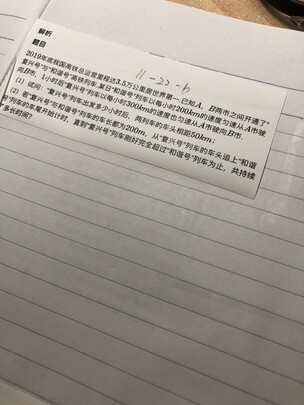 解析
题目
11-22-6
2019年底我国高铁总运营里程达3.5万公里居世界第一.已知A、B两市之间开通了“
复兴号”与“和谐号”高铁列车.某日“和谐号”列车以每小时200km的速度匀速从A市驶
向B市，1小时后“复兴号”列车以每小时300km的速度也匀速从A市驶向B市.
(1) 试问：“复兴号”列车出发多少小时后，两列车的车头相距50km；
(2) 若“复兴号”与和谐号”列车的车长都为200m，从“复兴号”列车的车头追上“和谐
号”列车的车尾开始计时，直到“复兴号”列车刚好完全超过“和谐号”列车为止，共持续
多长时间？